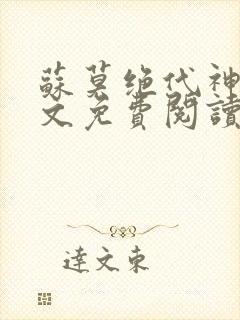 蘇莫绝代神
文免費閱讀
達文東